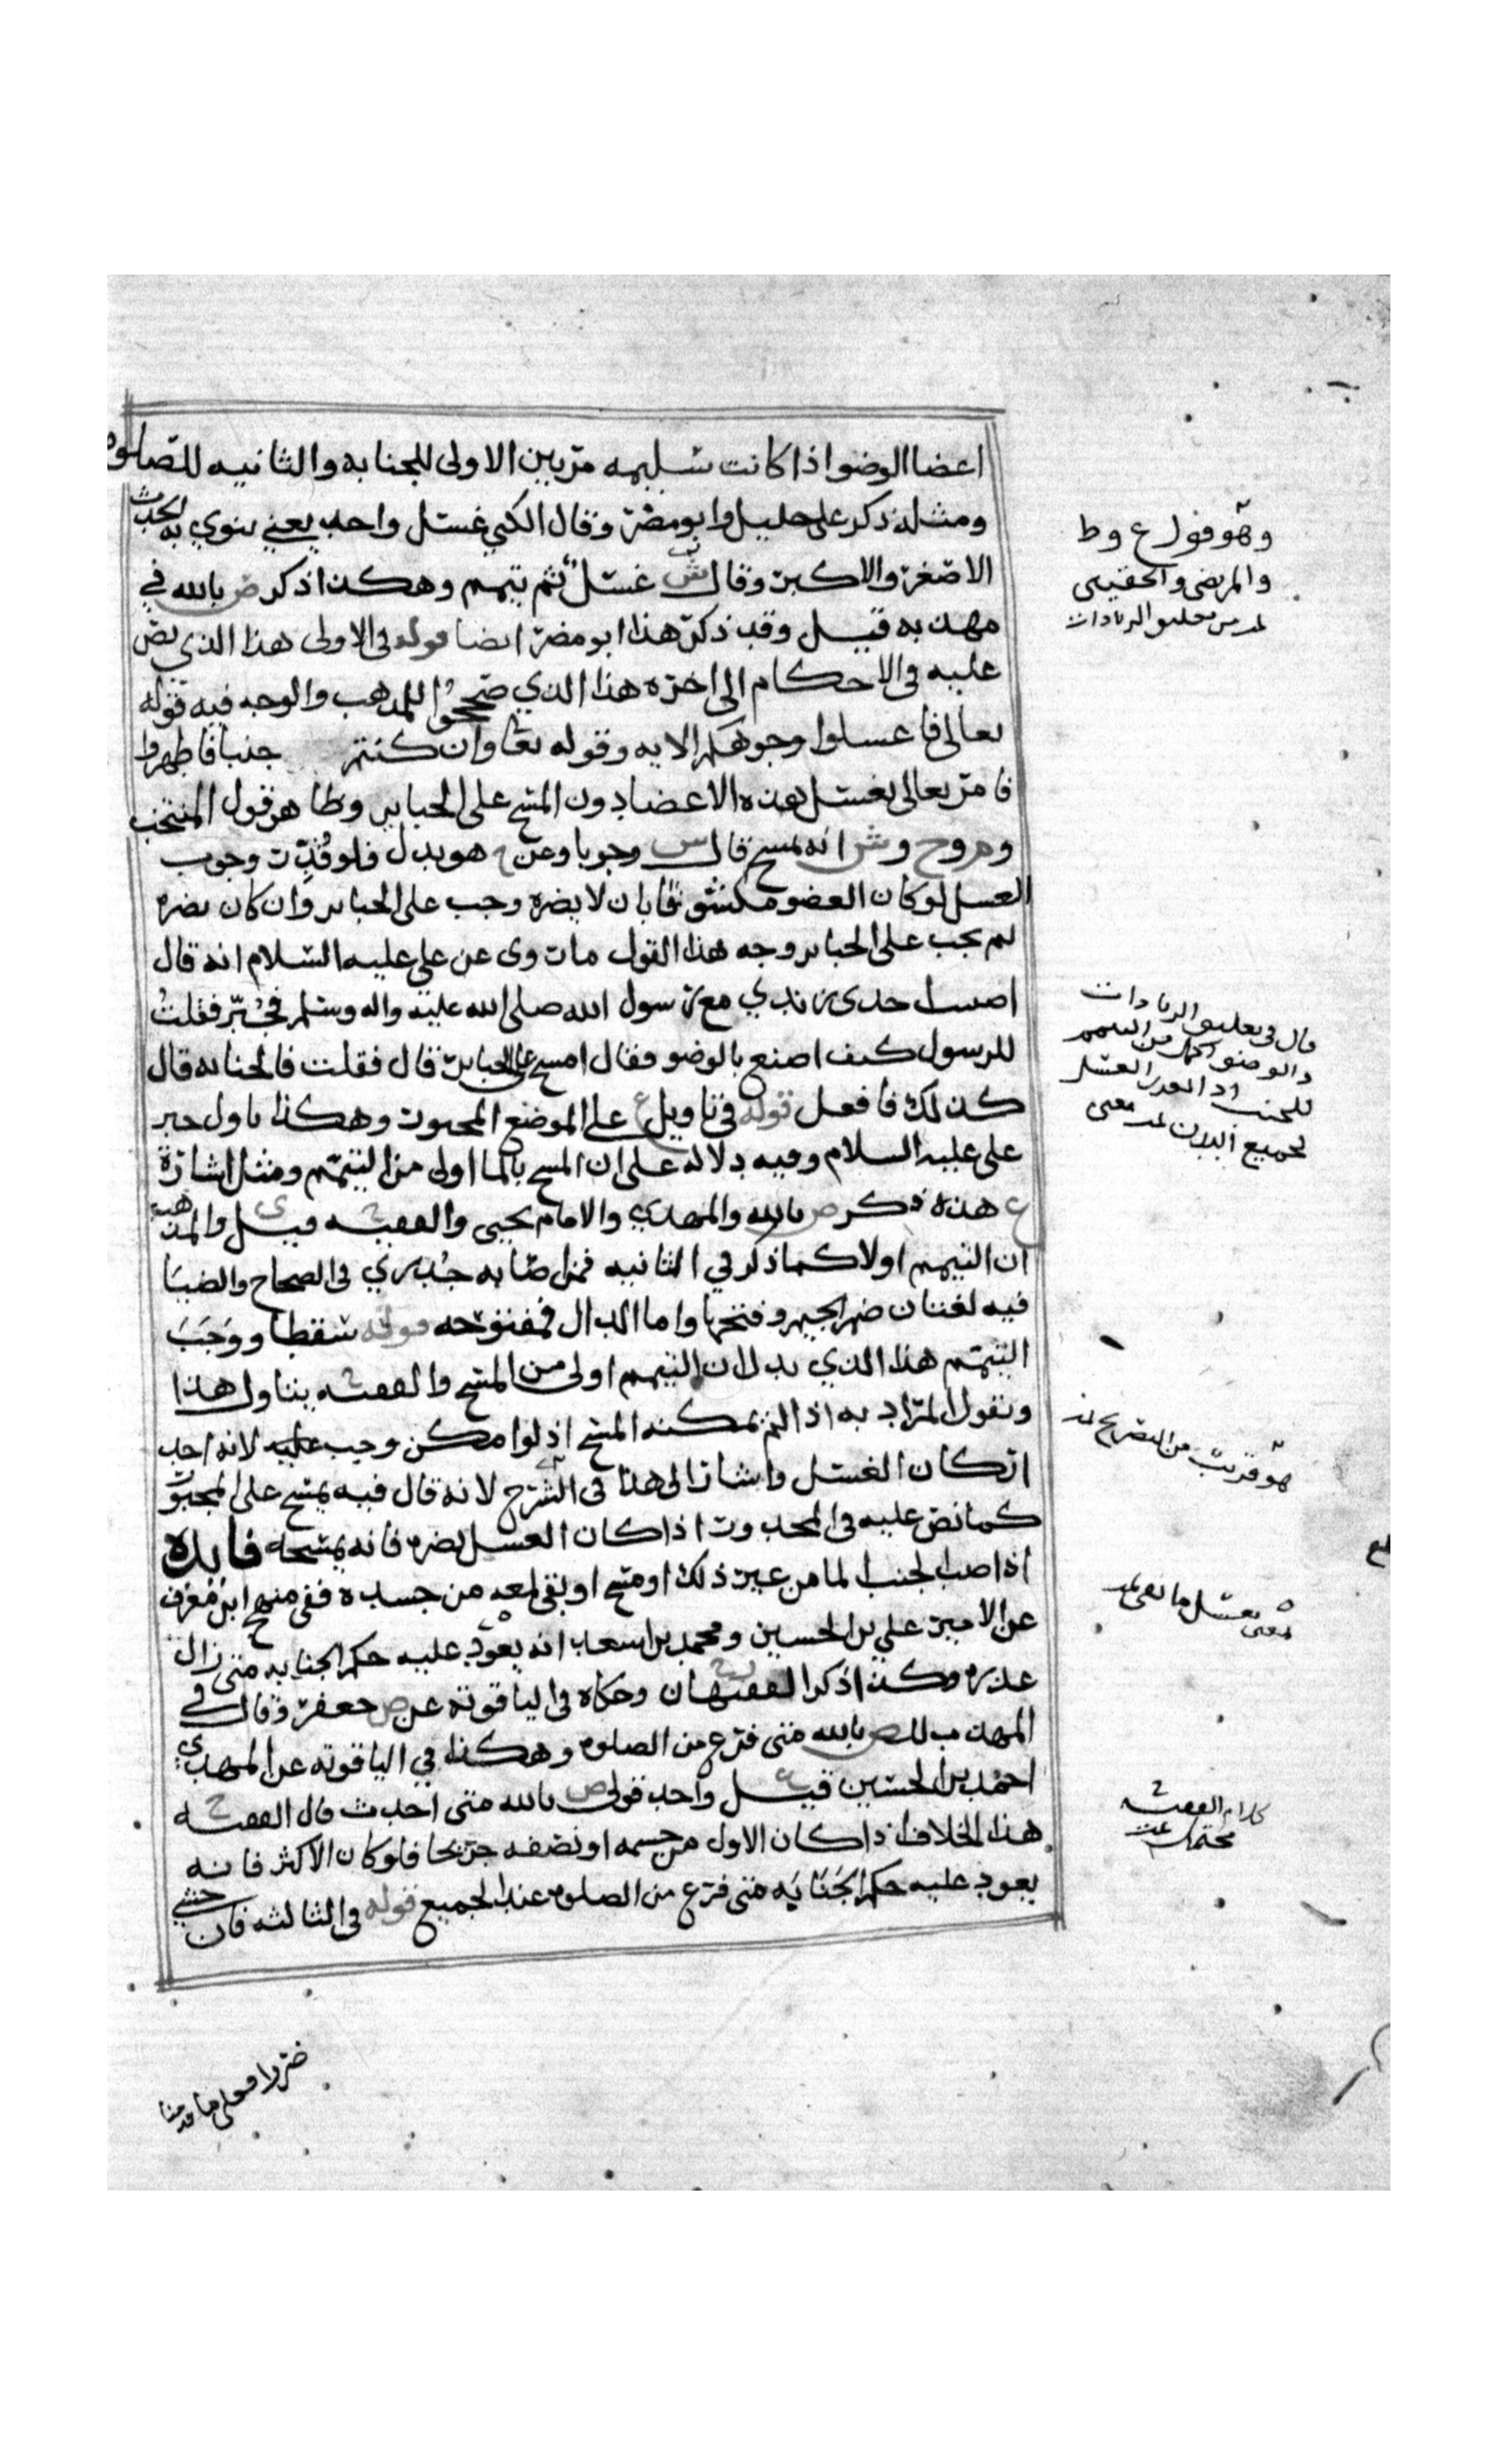 اعضا الوضو اذا كانت سليمه مرتين الاولى للجنابه والثانيه للصلوه
ومثله ذكر على خليل وابو مضر وقال الكني غسل واحد يعني ينوي به الحدث
الاصغر والاكبر وقال ش غسل ثم تيمم وهكذا ذكر ص بالله في
مهذبه قيل وقد ذكر هذا ابو مضر ايضا قوله في الاولى هذا الذي نص
عليه في الاحكام الى اخره هذا الذي صححوا للمذهب والوجه فيه قوله
تعالى فاغسلوا وجوهكم الايه وقوله تعا وان كنتم جنبا فاطهروا
فامر تعالى بغسل هذه الاعضا دون المسح على الجباير وظاهر قول المنتخب
و ح وش انه يمسح قال س وجوبا وعن هو بدل فلو قدرت وجوب
الغسل لو كان العضو مكشوفا بان لا يضره وجب على الجباير وان كان يضره
لم يجب على الجباير وجه هذا القول ما روي عن على عليه السلام انه قال
اصيب احدى زندي مع رسول الله صلى الله عليه واله وسلم فجبر فقلت
للرسول كيف اصنع بالوضو فقال امسح على الجباير قال فقلت فالجنابه قال
كذلك فافعل قوله في تاويل ع على الموضع المجبور وهكذا تاول خبر
على عليه السلام وفيه دلاله على ان المسح بالما اولى من التيمم ومثل اشارة
ع هذه ذكر ص بالله والمهدي والامام يحيى والفقيه ح قيل ى والمذهب
ان التيمم اولا كما ذكر في الثانيه فمن اصابه جدري في الصحاح والضيا
فيه لغتان ضم الجيم وفتحها واما الدال فمفتوحه قوله سقطا ووجب
التيمم هذا الذي يدل ان التيمم اولى من المسح والفقيه ح يتاول هذا
ويقول المراد به اذا لم يمكنه المسح اذ لو امكن وجب عليه لانه احد
اركان الغسل واشار الى هذا في الشرح لانه قال فيه يمسح على المجبور
كما نص عليه في المجدور اذا كان الغسل يضره فانه يمسحه فايده
اذا صب الجنب الما من غير ذلك او مسح او بقي لمعه من جسده ففي منهج ابن معرف
عن الامير علي بن الحسين ومحمد بن اسعد انه يعود عليه حكم الجنابه متى زال
عذره وكذا ذكر الفقيهان وحكاه في الياقوته عن ص جعفر وقال في
المهذب للص بالله متى فرغ من الصلوه وهكذا في الياقوته عن المهدي
احمد بن الحسين قيل ع واحد قولى ص بالله متى احدث قال الفقيه ح
هذا الخلاف اذا كان الاول من جسمه او نصفه جريحا فلو كان الاكثر فانه
يعود عليه حكم الجنابه متى فرغ من الصلوه عند الجميع قوله في الثالثه فان خشي
وهو قول ع وط
والمرتضى والحقيني
من تعليق الزيادات
قال في تعليق الزيادات
والوضو اكمل من التيمم
للجنب اذا تعذر الغسل
لجميع البدن تمت معنى
هو قريب من التصريح تمت
يعني يغسل ما بقي تمت
كلام الفقيه ح
محتمل
ضررا فعلى ما قدمنا